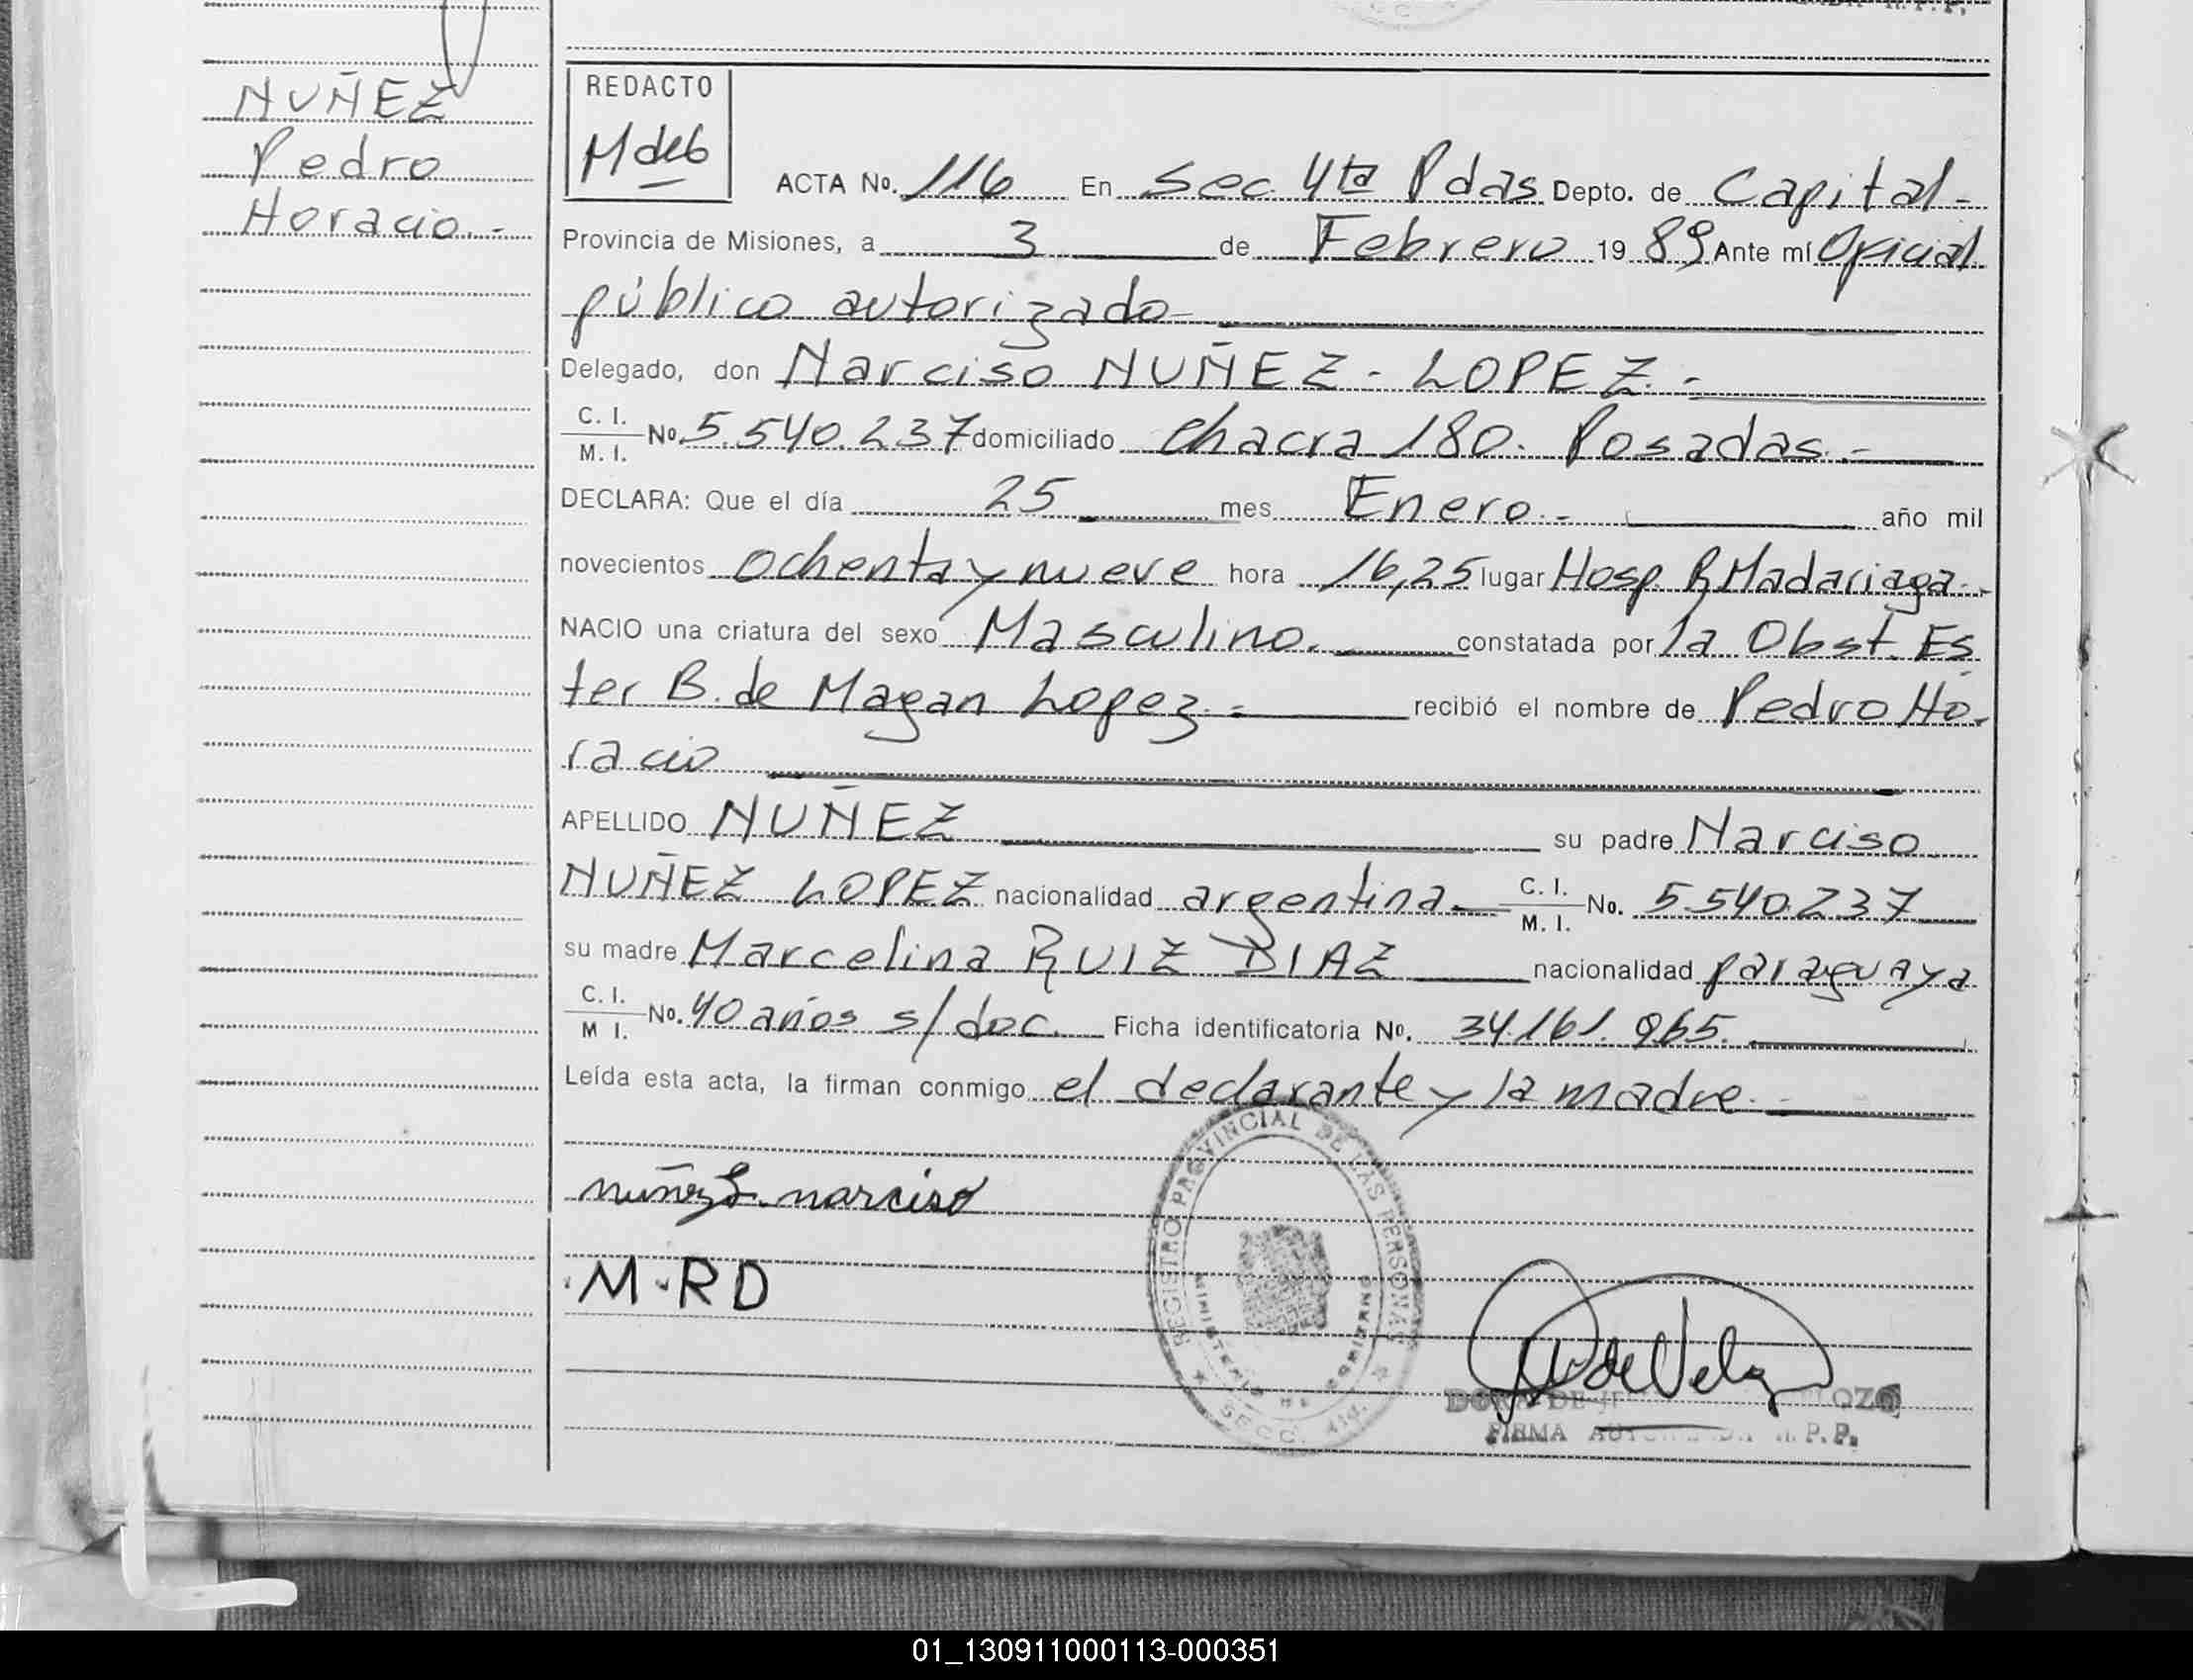 NUÑEZ
Pedro
Horacio.-
REDACTO
M deb
ACTA No. 116 En Sec. 4ta Pdas Depto. de Capital-
Provincia de Misiones, a 3 de Febrero 1989 Ante mí Oficial
público autorizado-
Delegado, don Narciso NUÑEZ - LOPEZ.-
C. I.
M. I. No. 5.540.237 domiciliado Chacra 180. Posadas.-
DECLARA: Que el día 25 mes Enero.- año mil
novecientos ochenta y nueve hora 16,25 lugar Hosp. R Madariaga.-
NACIO una criatura del sexo Masculino. constatada por la Obst. Es
ter B. de Magan Lopez.- recibió el nombre de Pedro Ho-
racio
APELLIDO NUÑEZ su padre Narciso
NUÑEZ LOPEZ nacionalidad argentina- C. I. M. I. No. 5.540.237
su madre Marcelina RUIZ DIAZ nacionalidad paraguaya
C. I.
M I. No. 40 años s/doc. Ficha identificatoria No. 34.161.965.
Leída esta acta, la firman conmigo el declarante y la madre.-
nuñez L. narciso
M.RD
REGISTRO PROVINCIAL DE LAS PERSONAS
MINISTERIO DE GOBIERNO
SECC. 4ta.
de Veloz
DORA DE
FIRMA
01_130911000113-000351